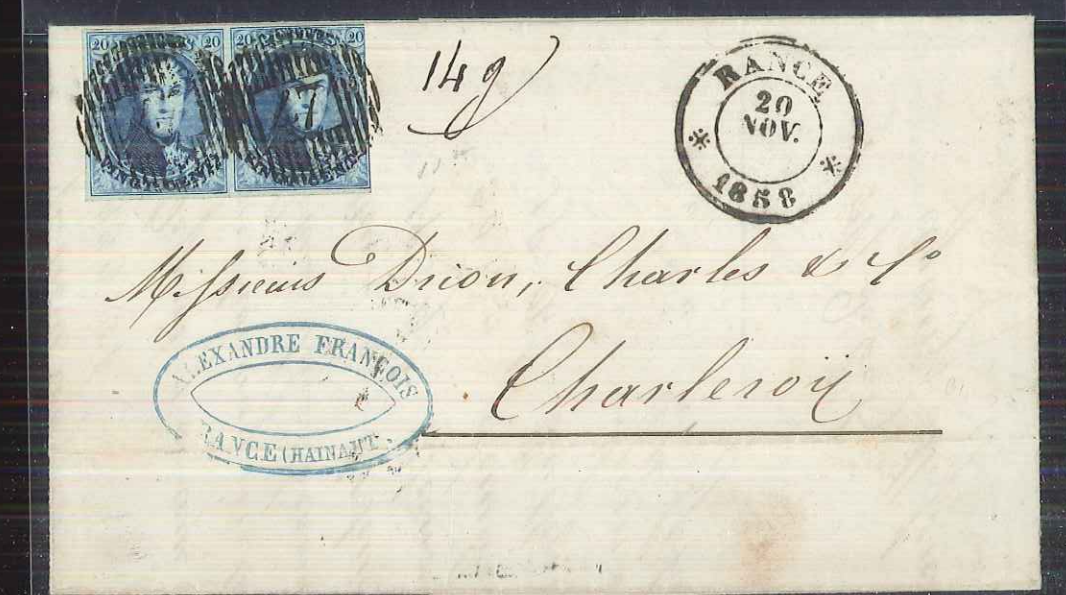 20 20 20 20
VINGT CENTS
14 g
RANCE
20
NOV.
1858
Messieurs Drion, Charles & Cº
Charleroÿ
ALEXANDRE FRANÇOIS
RANCE (HAINAUT)